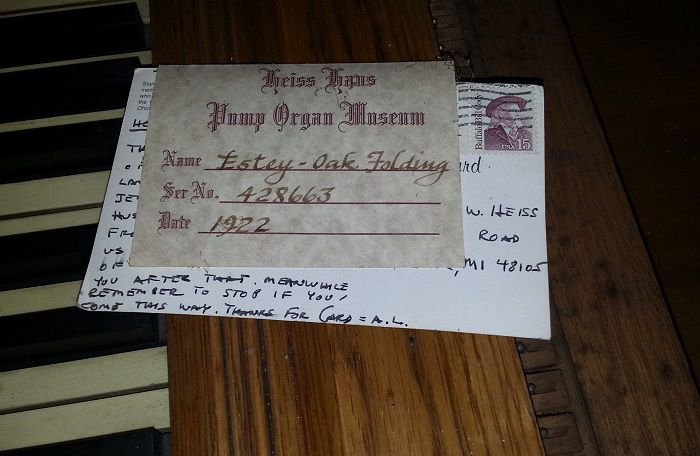 Heiss Haus
Pump Organ Museum
Name Estey - Oak Folding
Ser No. 428663
Date 1922
Buffalo Bill Cody
USA 15
rd
W. HEISS
ROAD
MI 48105
HUS
FR
US
OF
YOU AFTER THAT. MEANWHILE
REMEMBER TO STOP IF YOU
COME THIS WAY. THANKS FOR CARD = A.L.